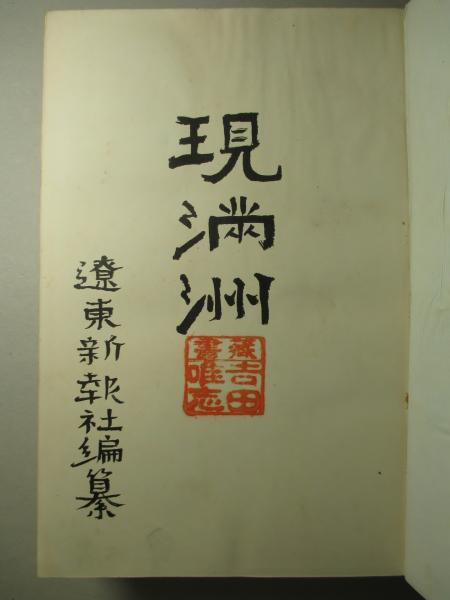 現滿洲
遼東新報社編纂
藏吉田
書唯